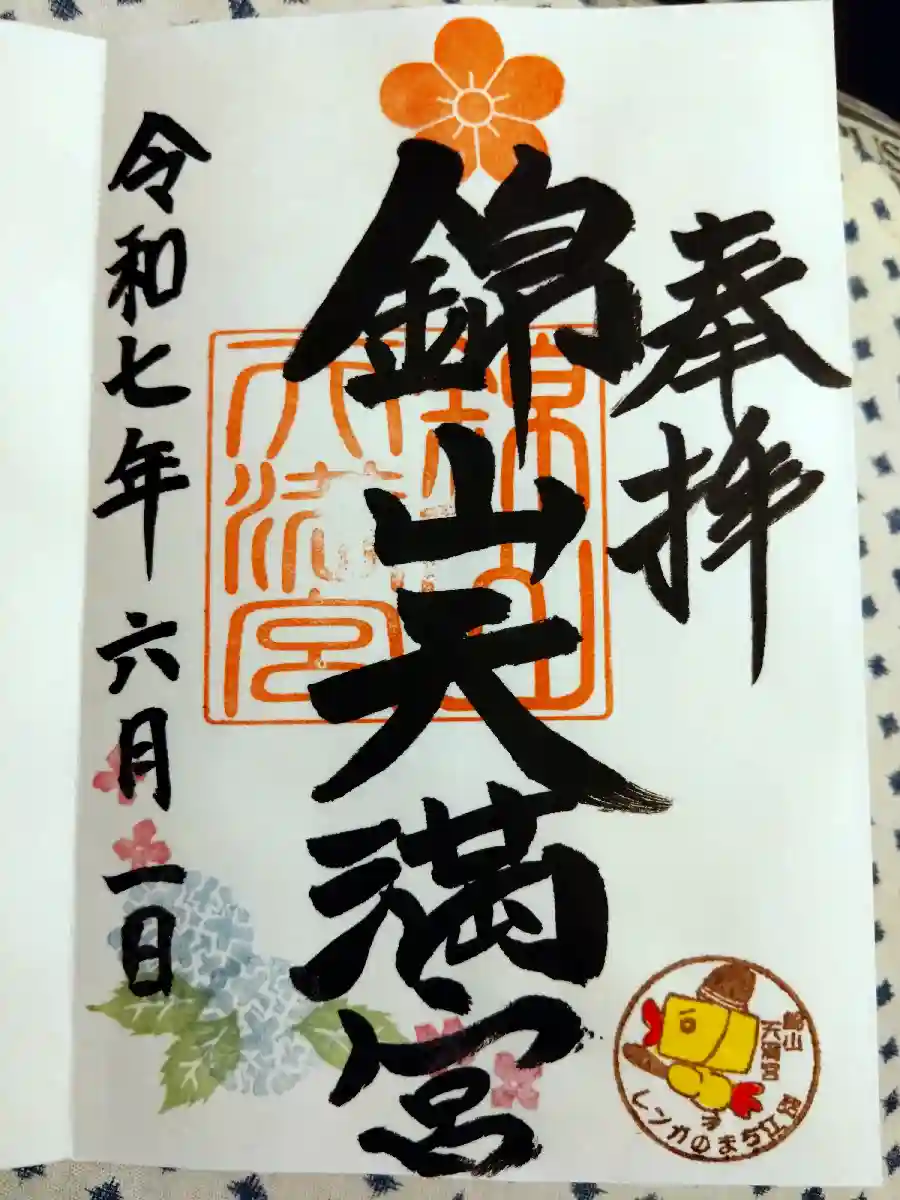 奉拝
錦山天満宮
錦山
天満宮
令和七年六月一日
錦山
天満宮
レンガのまち江別